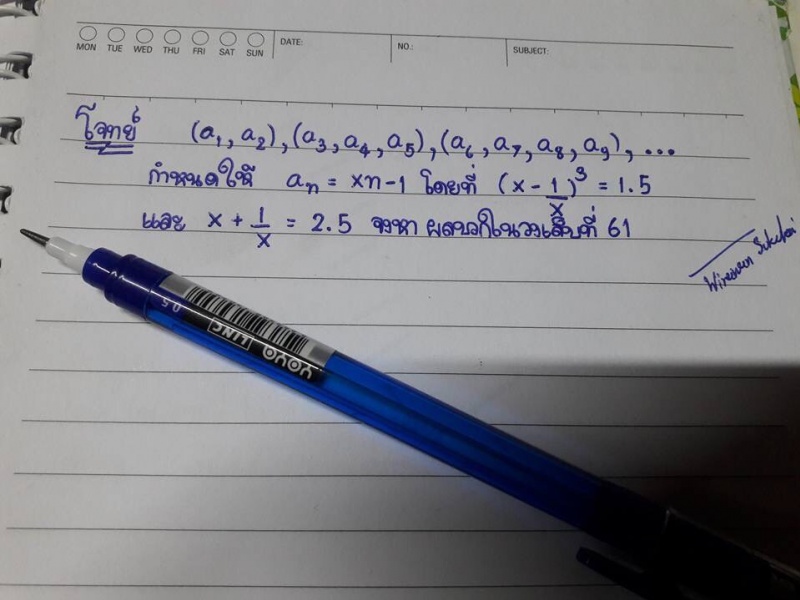 MON TUE WED THU FRI SAT SUN DATE: NO.: SUBJECT:
โจทย์ (a₁, a₂), (a₃, a₄, a₅), (a₆, a₇, a₈, a₉), ...
กำหนดให้ aₙ = xn-1 โดยที่ (x - 1/x)³ = 1.5
และ x + 1/x = 2.5 จงหา ผลบวกในวงเล็บที่ 61
0.5
YOYA LINC